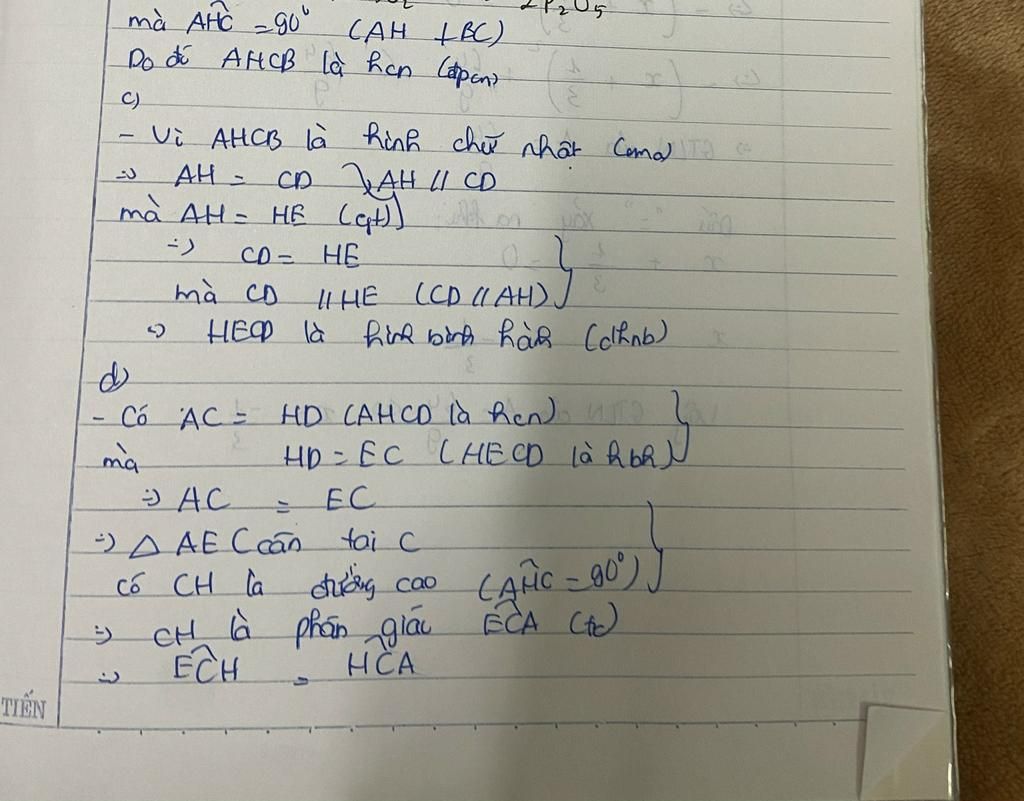 2P₂O₅
mà AĤC = 90° (AH ⊥ BC)
Do đó AHCB là hcn (đpcm)
c)
- Vì AHCB là hình chữ nhật (cmd
=> AH = CD AH // CD
mà AH = HE (gt)
=> CD = HE
mà CD // HE (CD // AH)
=> HECD là hình bình hàh (dhnb)
d)
- Có AC = HD (AHCD là hcn)
mà HD = EC (HECD là hbh)
=> AC = EC
=> △ AEC cân tai C
có CH là đường cao (AĤC = 90°)
=> CH là phân giác EĈA (tc)
=> EĈH = HĈA
TIẾN